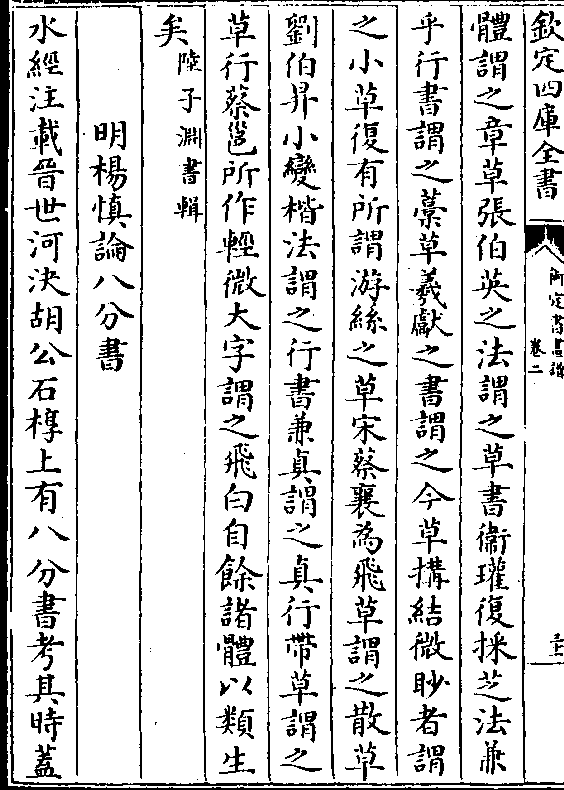 欽定四庫全書
御定書畫譜
卷二
體謂之章草張伯英之法謂之草書衞瓘復採芝法兼
乎行書謂之藁草羲獻之書謂之今草搆結微眇者謂
之小草復有所謂游絲之草宋蔡襄為飛草謂之散草
劉伯昇小變楷法謂之行書兼真謂之真行帶草謂之
草行蔡邕所作輕微大字謂之飛白自餘諸體以類生
矣陸子淵書輯
明楊慎論八分書
水經注載晉世河決胡公石椁上有八分書考其時蓋